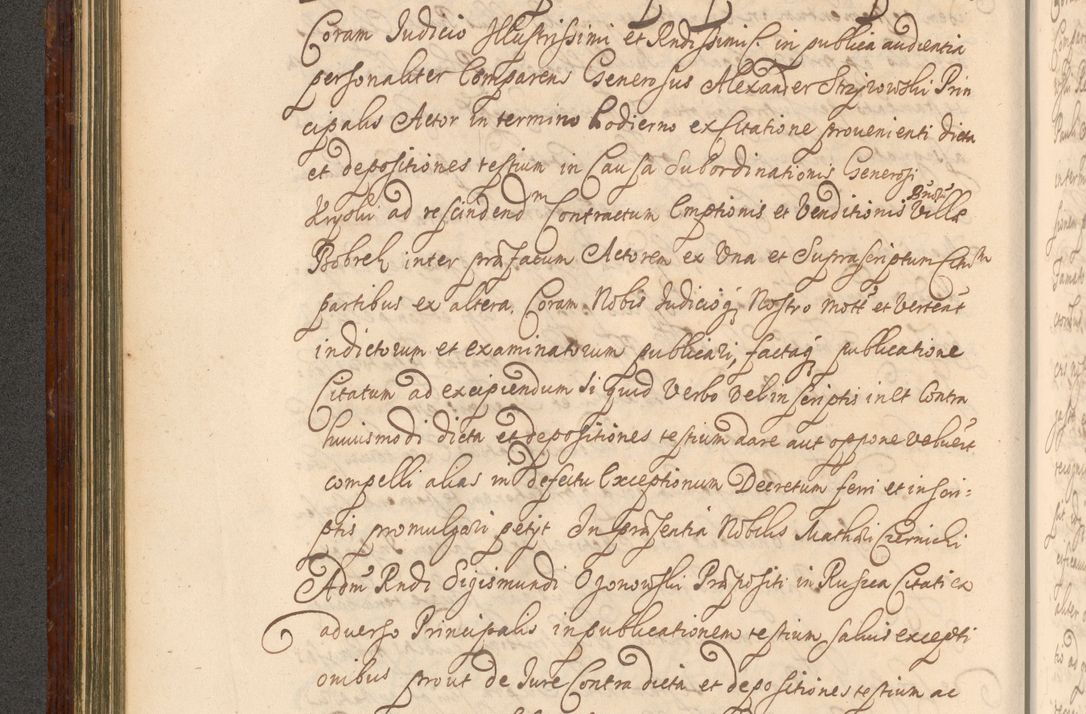 Coram Judicio Illustrissimi et Rndissimi C. in publica audientia
personaliter Comparens Generosus Alexander Strzyzowski Prin
cipalis Actor in termino hodierno ex Citatione provenienti dicta
et depositiones testium in Causa Subordinationis Generosi
ad rescindendm Contractum Emptionis et Venditionis Bonorũ Villæ
Bobrek inter præfatum Actorem ex Una et Suprascriptum Citatũ
partibus ex altera, Coram Nobis Judicioq; Nostro mott et vertent
indictorum et examinatorum publicari, factaq; publicatione
Citatum ad excipiendum si quid Verbo vel in scriptis in et Contra
huiusmodi dicta et depositiones testium dare aut oppone veluerit
compelli alias in defectu Exceptionum Decretum ferri et in scri=
ptis promulgari petijt In præsentia Nobilis Mathæi Czernicki
Admˢ Rndi Sigismundi Ozonowski Præpositi in Ruszca Citati ex
adverso Principalis in publicationem testium, salvis excepti
onibus prout de Jure Contra dicta et depositiones testium ac